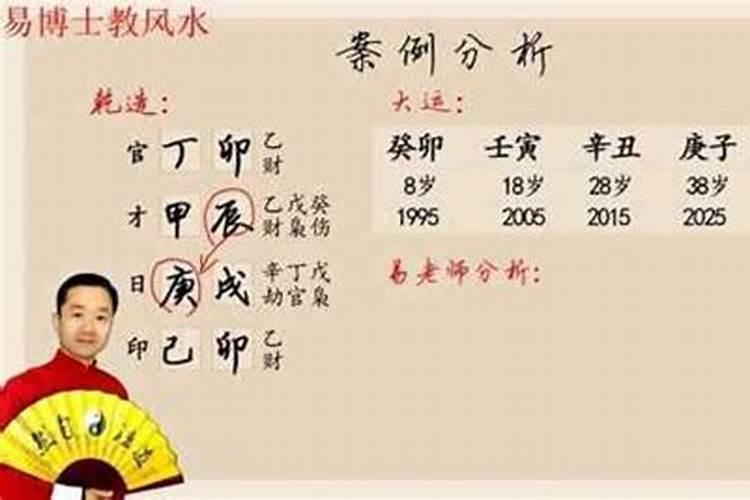 易博士教风水
案例分析
乾造：
官 丁 卯 乙财
才 甲 辰 乙财 戊枭 癸伤
日 庚 戌 辛劫 丁官 戊枭
印 己 卯 乙财
大运：
癸卯 壬寅 辛丑 庚子
8岁 18岁 28岁 38岁
1995 2005 2015 2025
易老师分析：